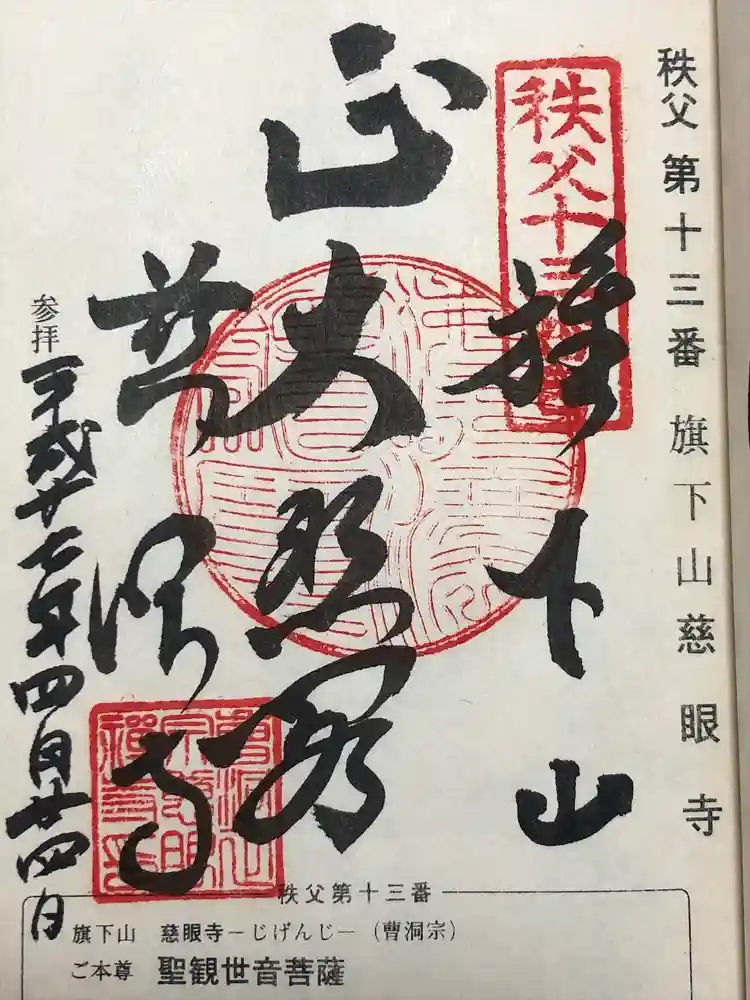 秩父 第十三番 旗下山 慈眼寺
秩父十三
旗下山
正大悲殿
慈眼寺
参拝 平成廿七年四月廿四日
秩父第十三番
旗下山 慈眼寺－じげんじ－（曹洞宗）
ご本尊 聖観世音菩薩